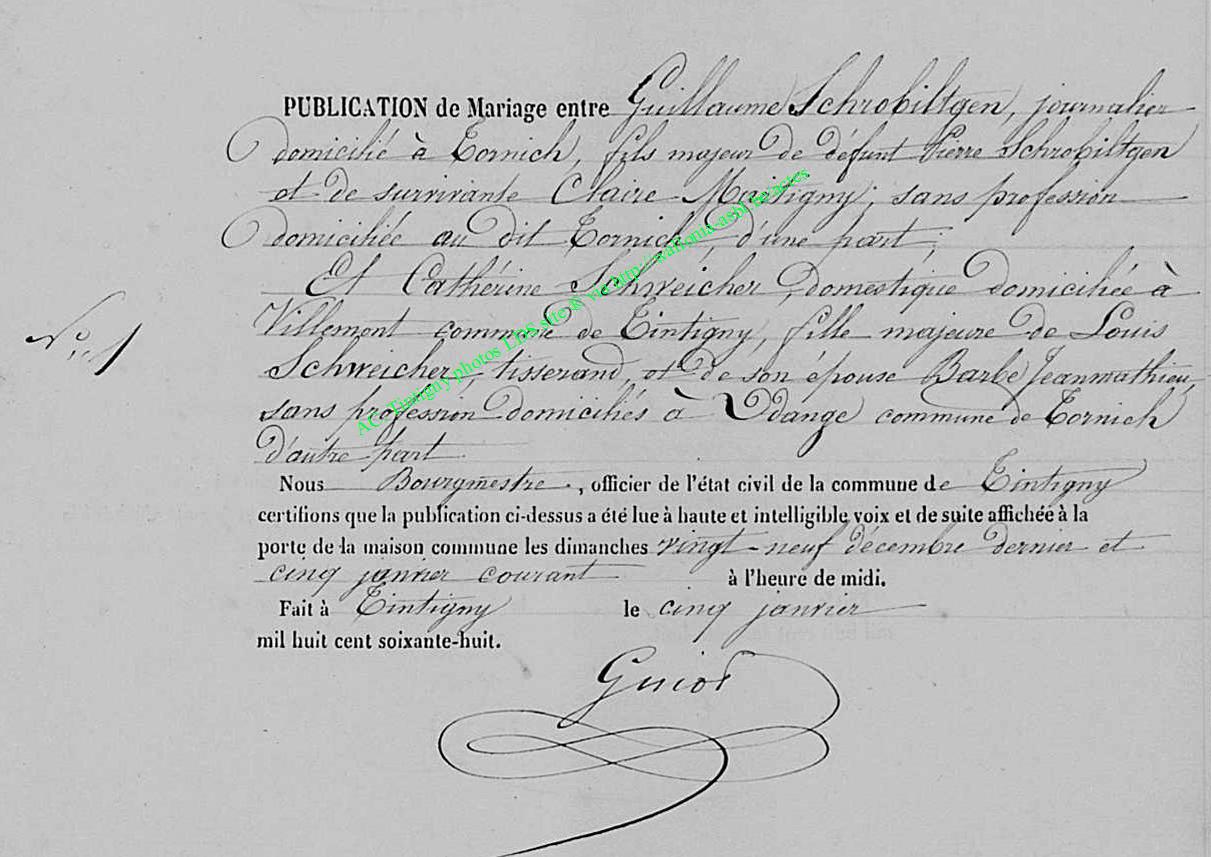 PUBLICATION de Mariage entre Guillaume Schrobiltgen, journalier
domicilié à Tornich, fils majeur de défunt Pierre Schrobiltgen
et de survivante Claire sans profession
domiciliée au dit Tornich, d'une part;
Et Cathérine Schweicher, domestique domiciliée à
Villemont commune de Tintigny, fille majeure de Louis
N° 1
Schweicher, tisserand, et de son épouse Barbe Jeanmathieu,
sans profession domiciliés à Udange commune de Tornich
d'autre part
Nous Bourgmestre, officier de l'état civil de la commune de Tintigny
certifions que la publication ci-dessus a été lue à haute et intelligible voix et de suite affichée à la
porte de la maison commune les dimanches vingt-neuf décembre dernier et
cinq janvier courant à l'heure de midi.
Fait à Tintigny le cinq janvier
mil huit cent soixante-huit.
AC Tintigny photos LDS site & via http://wallonia-asbl.be/actes